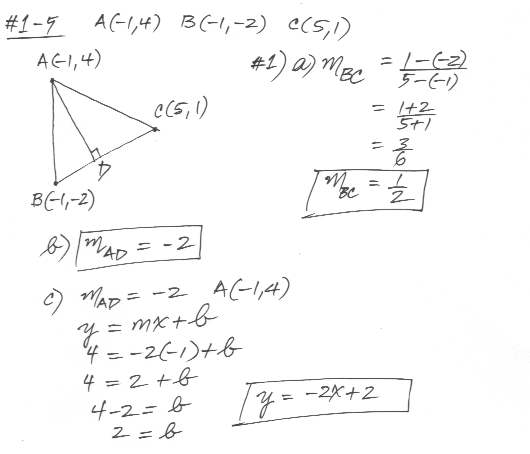 #1-5 A(-1,4) B(-1,-2) C(5,1)
A(-1,4)
C(5,1)
D
B(-1,-2)
#1) a) m_BC = 1-(-2)/5-(-1)
= 1+2/5+1
= 3/6
m_BC = 1/2
b) m_AD = -2
c) m_AD = -2 A(-1,4)
y = mx+b
4 = -2(-1)+b
4 = 2+b
4-2 = b
2 = b
y = -2x+2